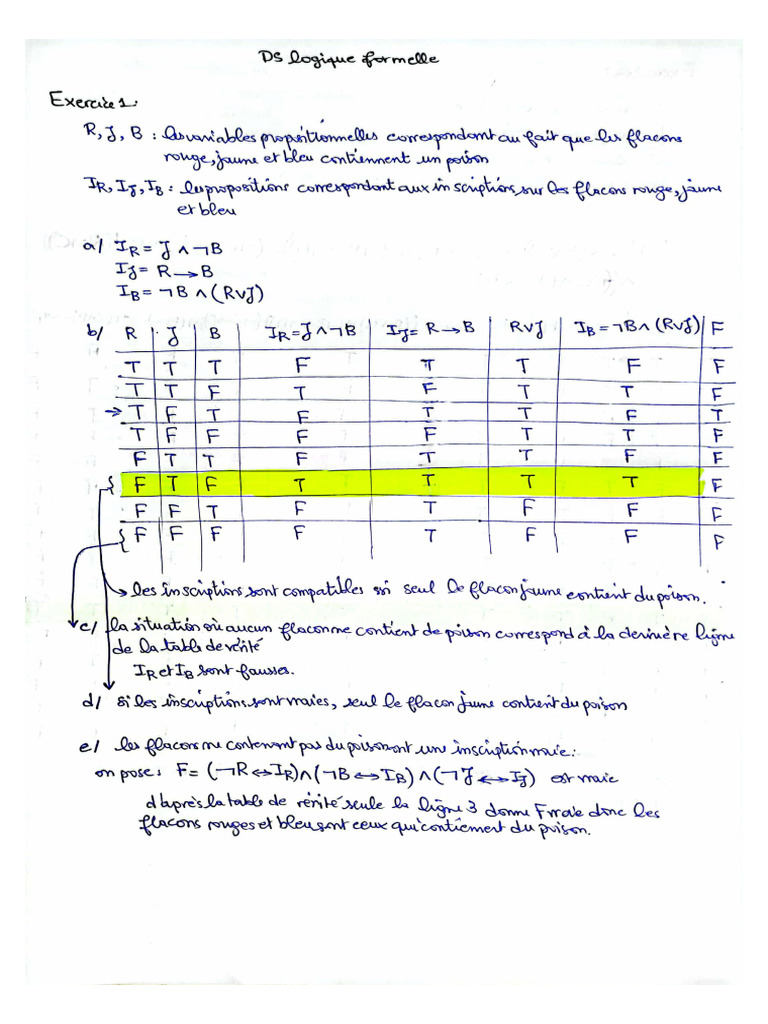 DS logique formelle
Exercice 1:
R, J, B : les variables propositionnelles correspondant au fait que les flacons
rouge, jaune et bleu contiennent un poison
IR, IJ, IB : les propositions correspondant aux inscriptions sur les flacons rouge, jaune
et bleu
a/ IR = J ∧ ¬B
IJ = R → B
IB = ¬B ∧ (R∨J)
b/ R J B IR = J ∧ ¬B IJ = R → B R∨J IB = ¬B ∧ (R∨J) F
T T T F T T F F
T T F T F T T F
→ T F T F T T F T
T F F F F T T F
F T T F T T F F
F T F T T T T F
F F T F T F F F
F F F F T F F F
les inscriptions sont compatibles ssi seul le flacon jaune contient du poison.
c/ la situation où aucun flacon ne contient de poison correspond à la dernière ligne
de la table de vérité
IR et IB sont fausses.
d/ si les inscriptions sont vraies, seul le flacon jaune contient du poison
e/ les flacons ne contenant pas du poison ont une inscription vraie :
on pose : F = (¬R ↔ IR) ∧ (¬B ↔ IB) ∧ (¬J ↔ IJ) est vraie
d'après la table de vérité seule la ligne 3 donne F vraie donc les
flacons rouges et bleu sont ceux qui contiennent du poison.